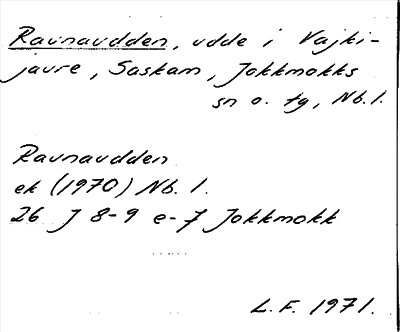 Raunaudden, udde i Vajki-
jaure, Saskam, Jokkmokks
sn o. tg, Nb.l.
Raunaudden
ek (1970) Nb. l.
26 J 8-9 e-f Jokkmokk
L.F. 1971.